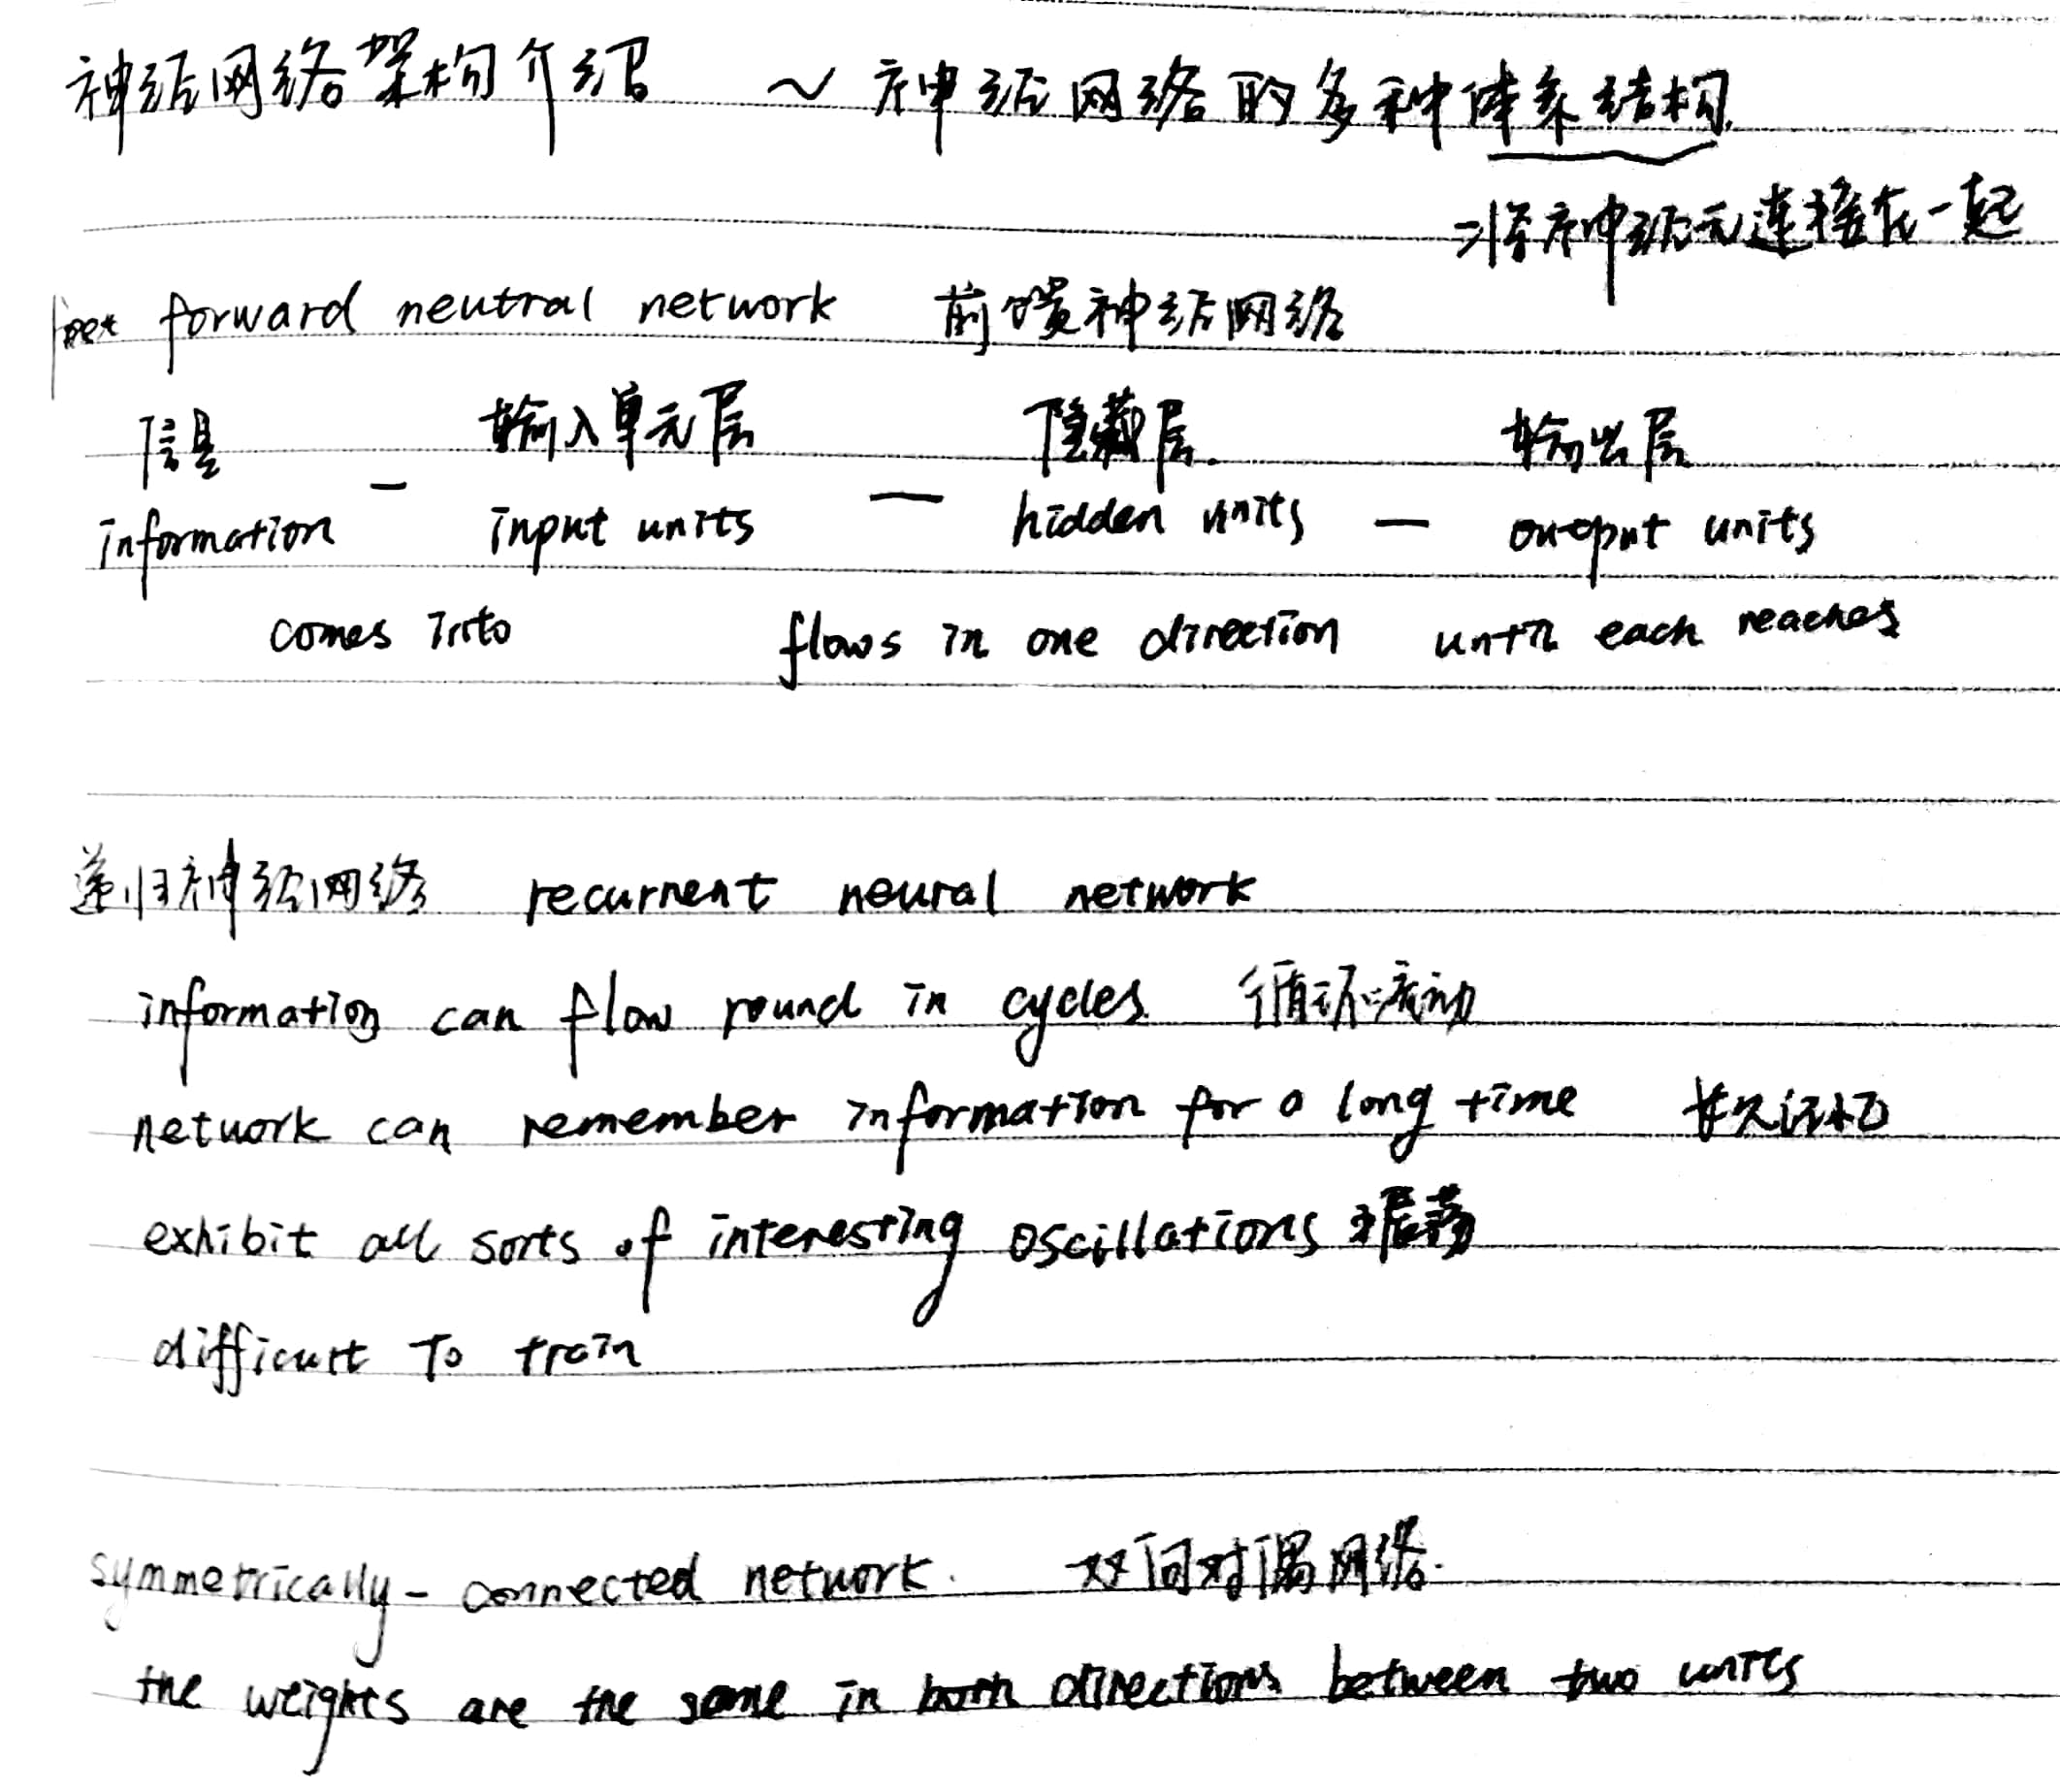 神经网络架构介绍 ~ 神经网络的多种体系结构
=将神经元连接在一起
forward neutral network 前馈神经网络
信息 输入单元层 隐藏层. 输出层
information — input units — hidden units — output units
comes into flows in one direction until each reaches
递归神经网络 recurrent neural network
information can flow round in cycles 循环流动
network can remember information for a long time 长久记忆
exhibit all sorts of interesting oscillations 振荡
difficult To train
symmetrically - connected network. 双向对偶网络.
the weights are the same in both directions between two units